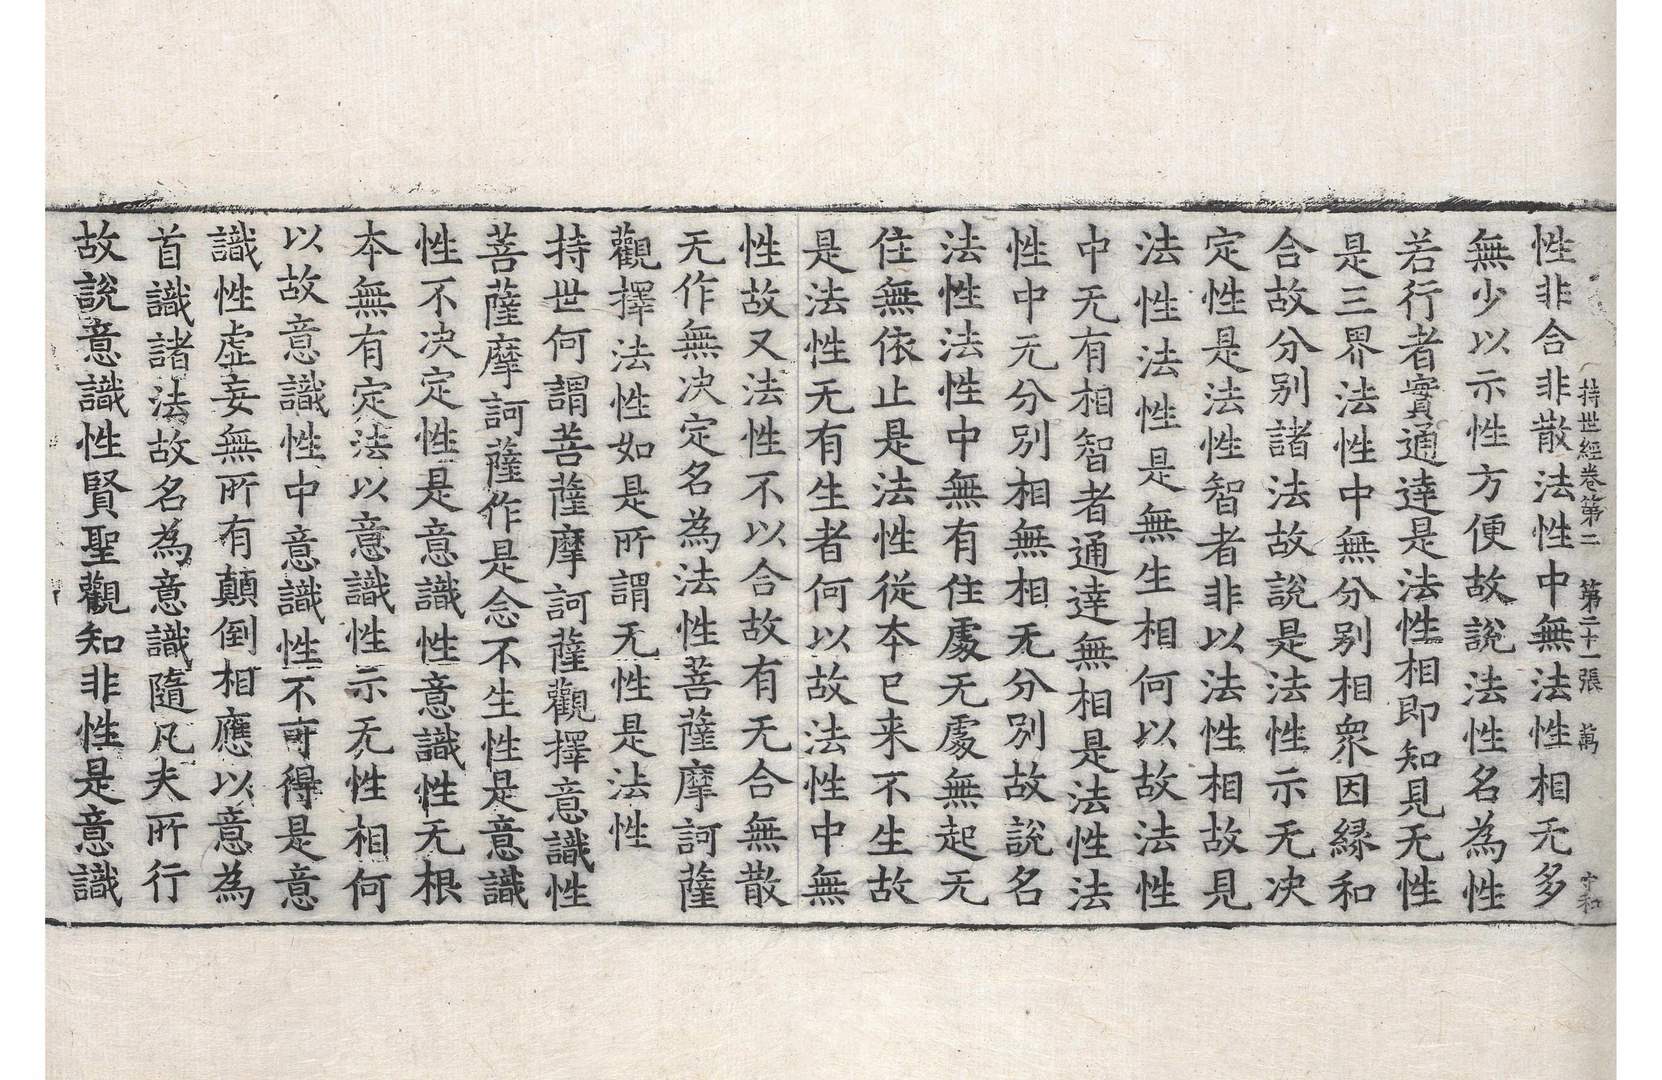 持世經卷第二　第二十一張　萬
性非合非散法性中無法性相无多
無少以示性方便故說法性名為性
若行者實通達是法性相即知見无性
是三界法性中無分別相衆因緣和
合故分別諸法故說是法性示无決
定性是法性智者非以法性相故見
法性法性是無生相何以故法性
中无有相智者通達無相是法性法
性中无分別相無相无分別故說名
法性法性中無有住處无處無起无
住無依止是法性從本已来不生故
是法性无有生者何以故法性中無
性故又法性不以合故有无合無散
无作無決定名為法性菩薩摩訶薩
觀擇法性如是所謂无性是法性
持世何謂菩薩摩訶薩觀擇意識性
菩薩摩訶薩作是念不生性是意識
性不決定性是意識性意識性无根
本無有定法以意識性示无性相何
以故意識性中意識性不可得是意
識性虛妄無所有顛倒相應以意為
首識諸法故名為意識隨凡夫所行
故說意識性賢聖觀知非性是意識